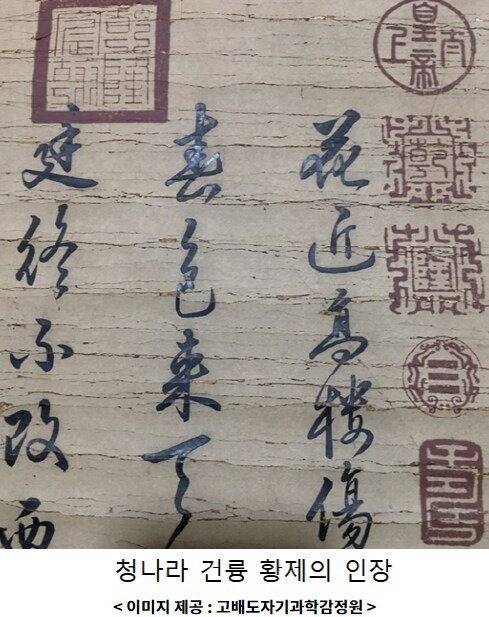 太上皇帝
乾
隆
花近高樓傷
春色來天
廷終不改西
청나라 건륭 황제의 인장
< 이미지 제공 : 고배도자기과학감정원 >